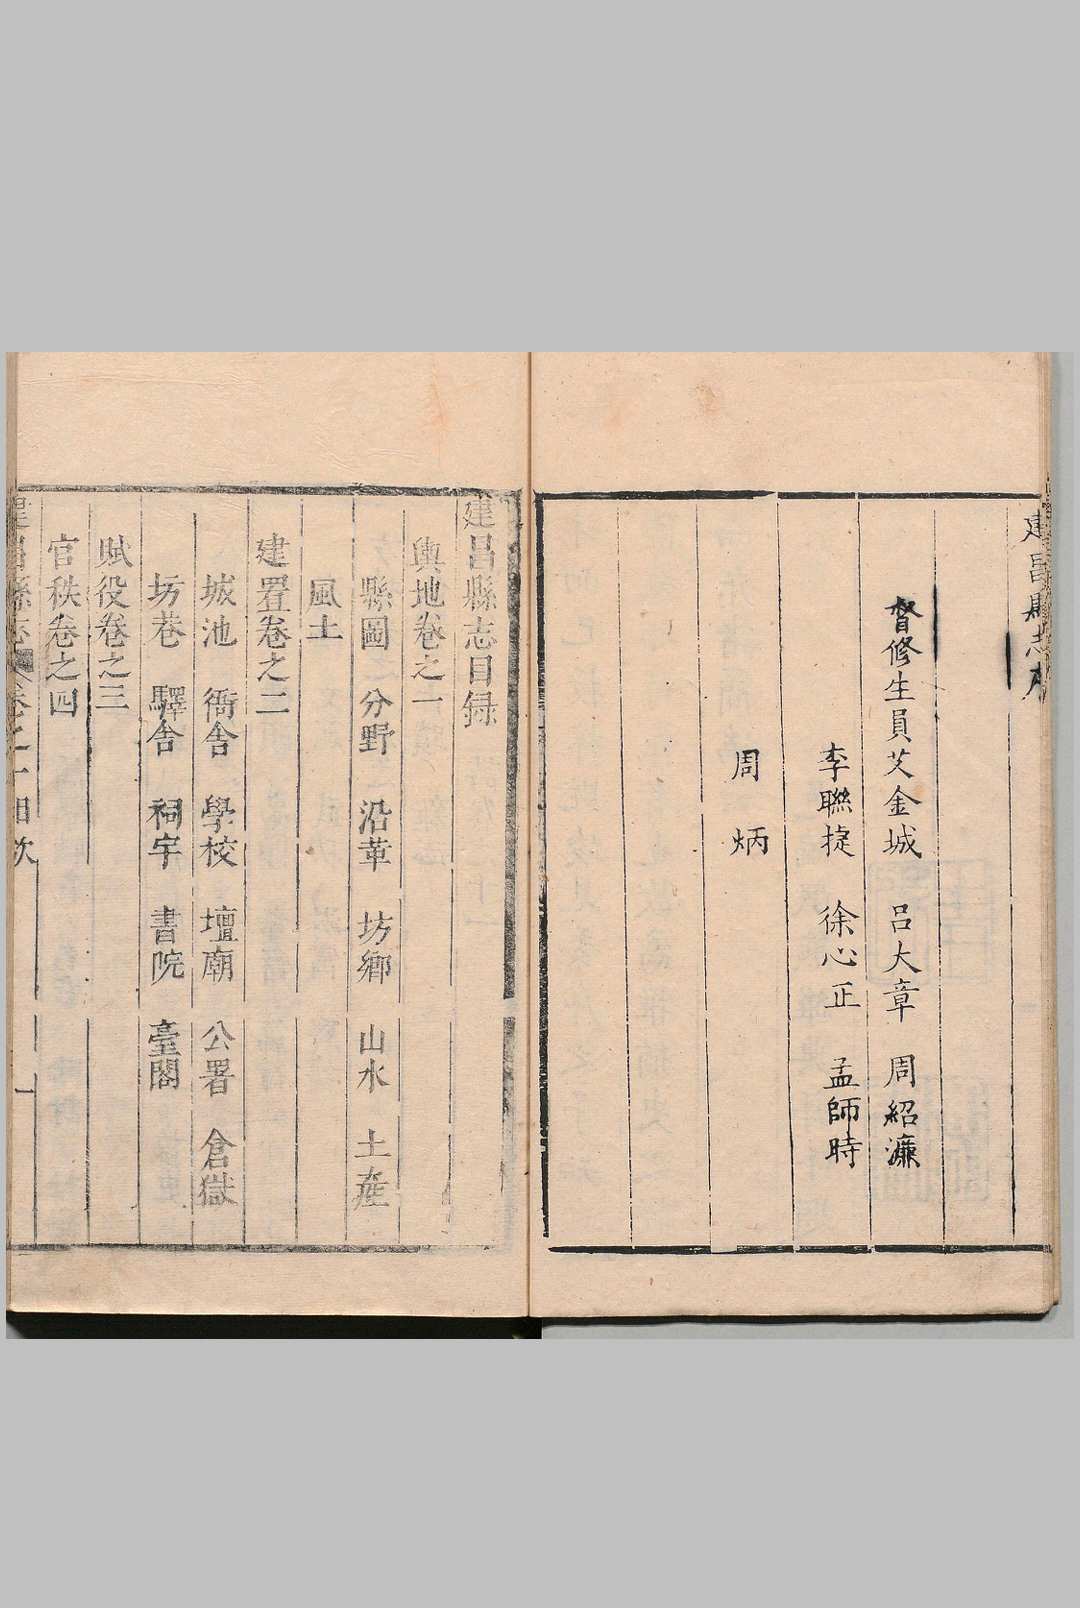 建昌縣志
督修生員艾金城　呂大章　周紹濂
李聯捷　徐心正　孟師時
周　炳
建昌縣志目録
輿地卷之一
縣圖　分野　沿革　坊鄉　山水　土産
風土
建置卷之二
城池　衙舍　學校　壇廟　公署　倉獄
坊巷　驛舍　祠宇　書院　臺閣
賦役卷之三
官秩卷之四
建昌縣志　卷之一目次　一